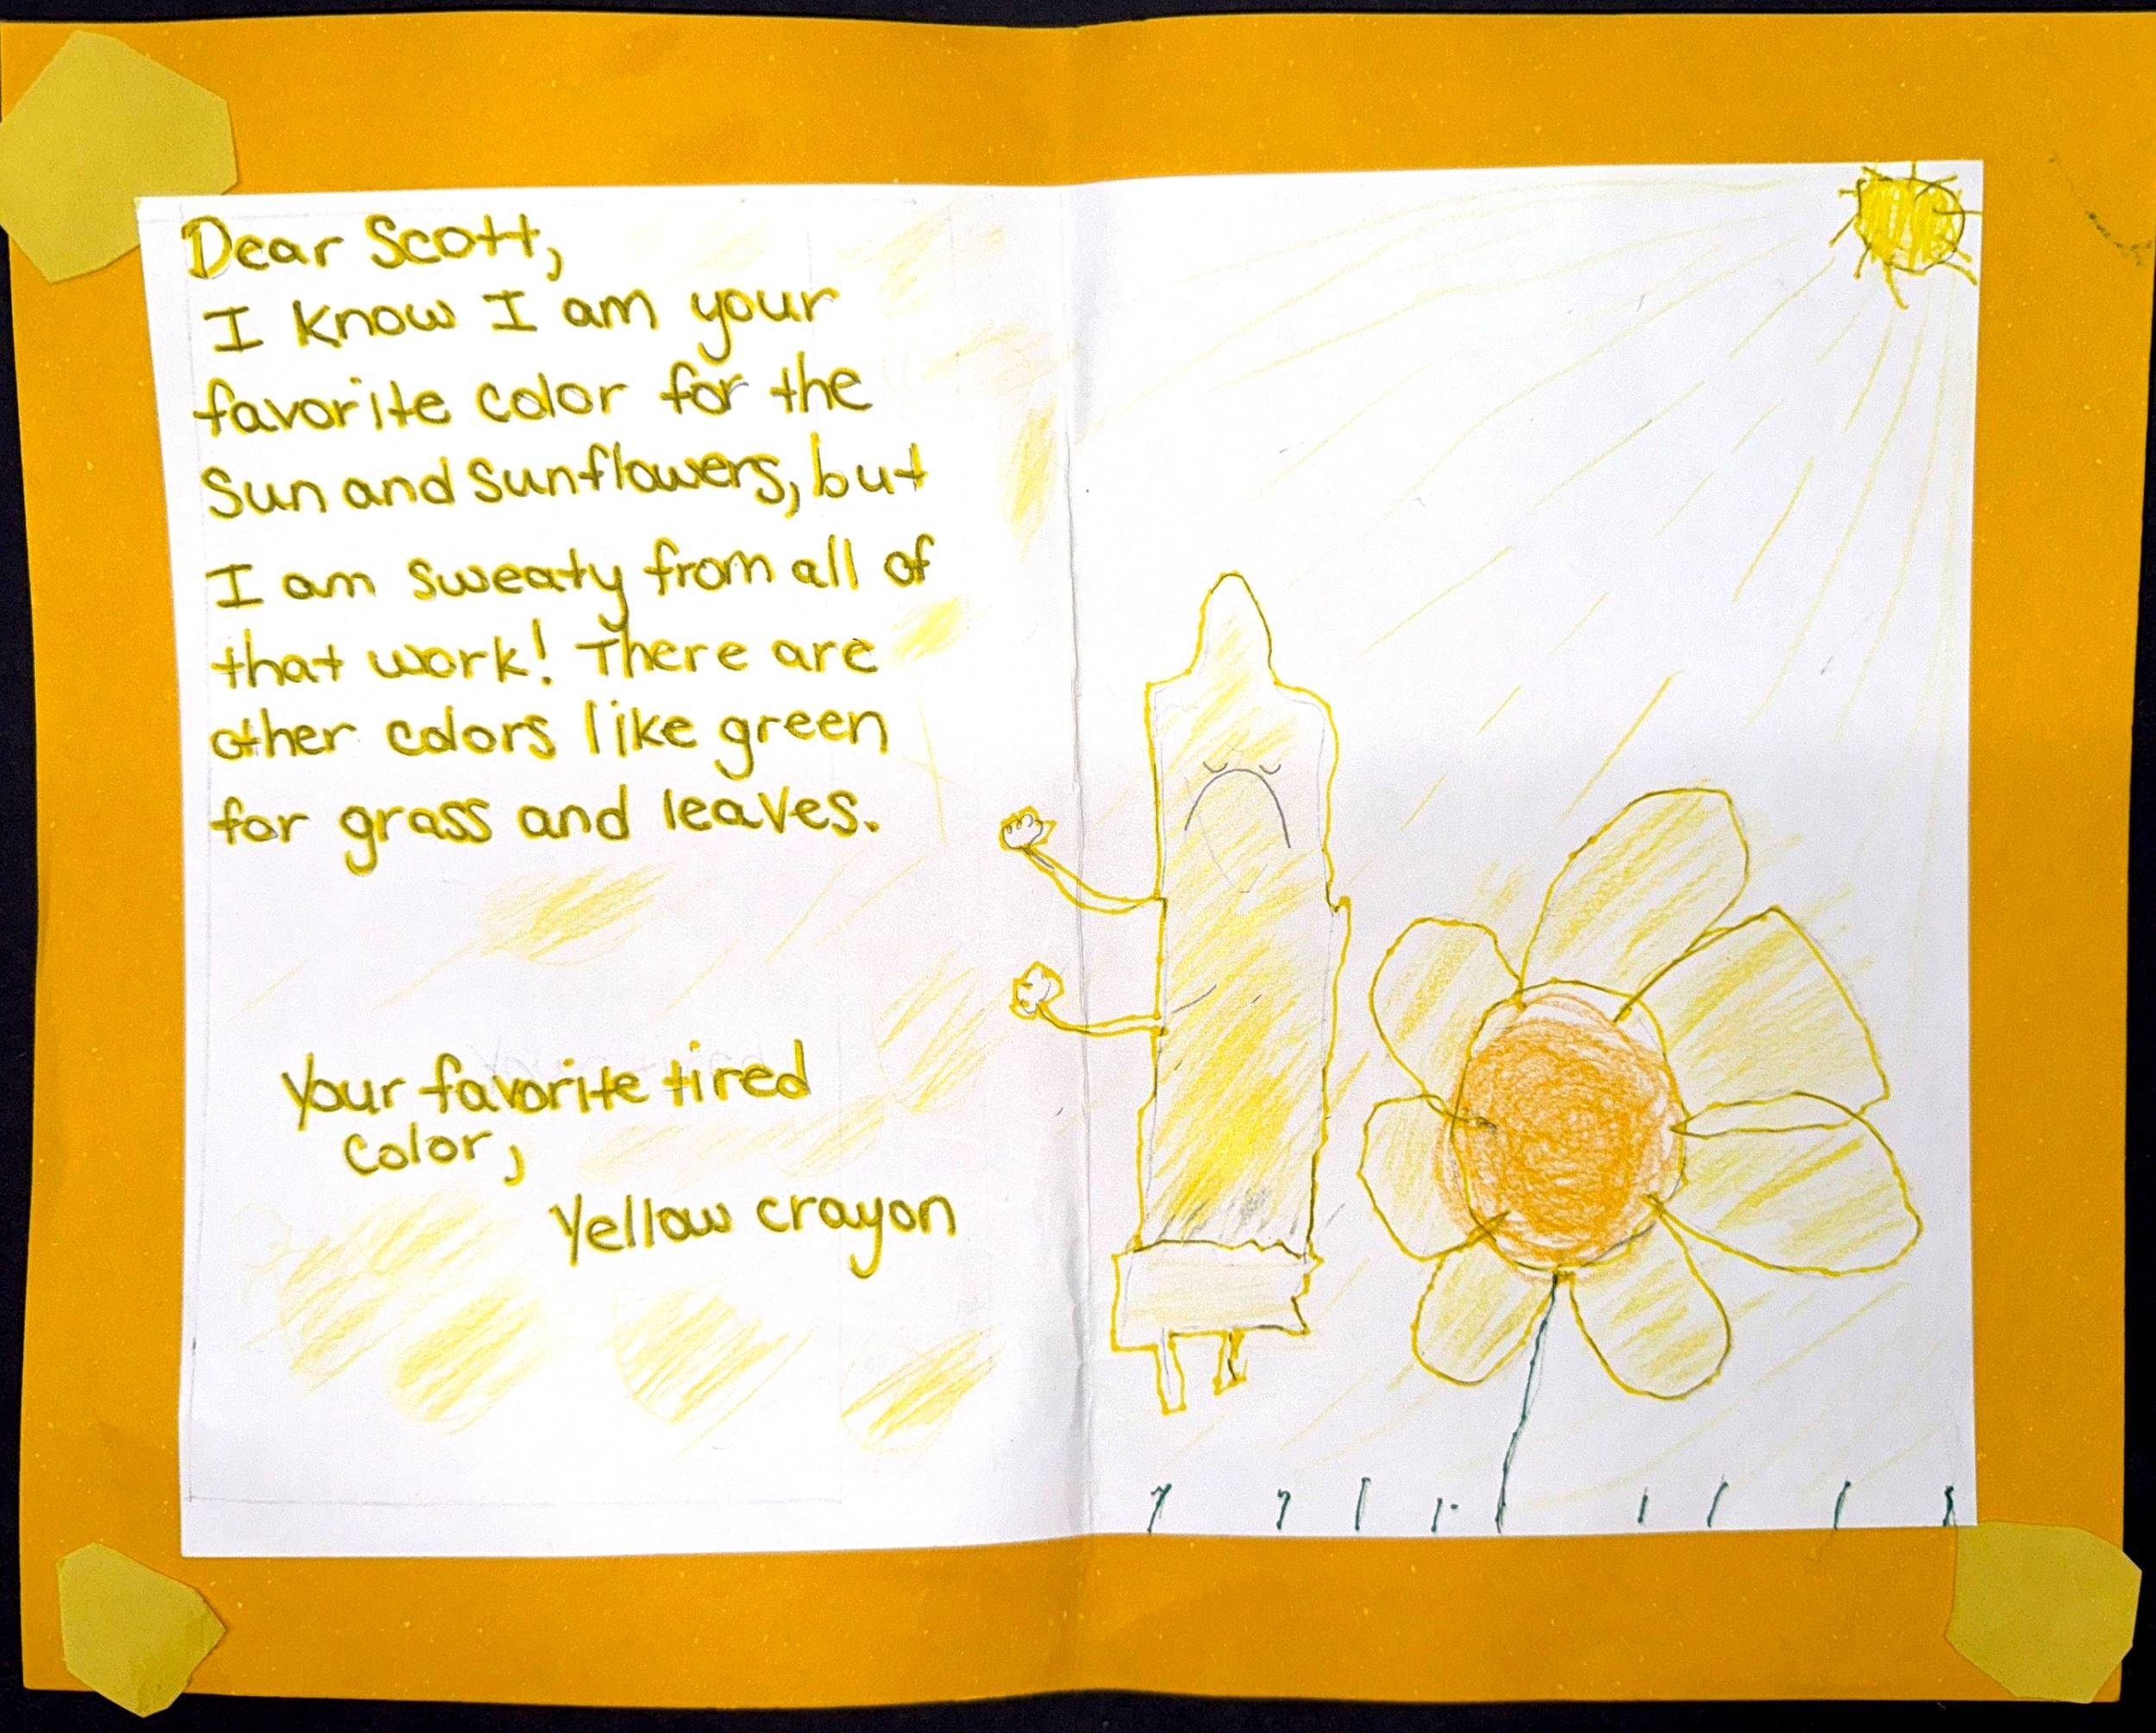 Dear Scott,
I know I am your
favorite color for the
Sun and Sunflowers, but
I am sweaty from all of
that work! There are
other colors like green
for grass and leaves.
Your favorite tired
color,
Yellow crayon